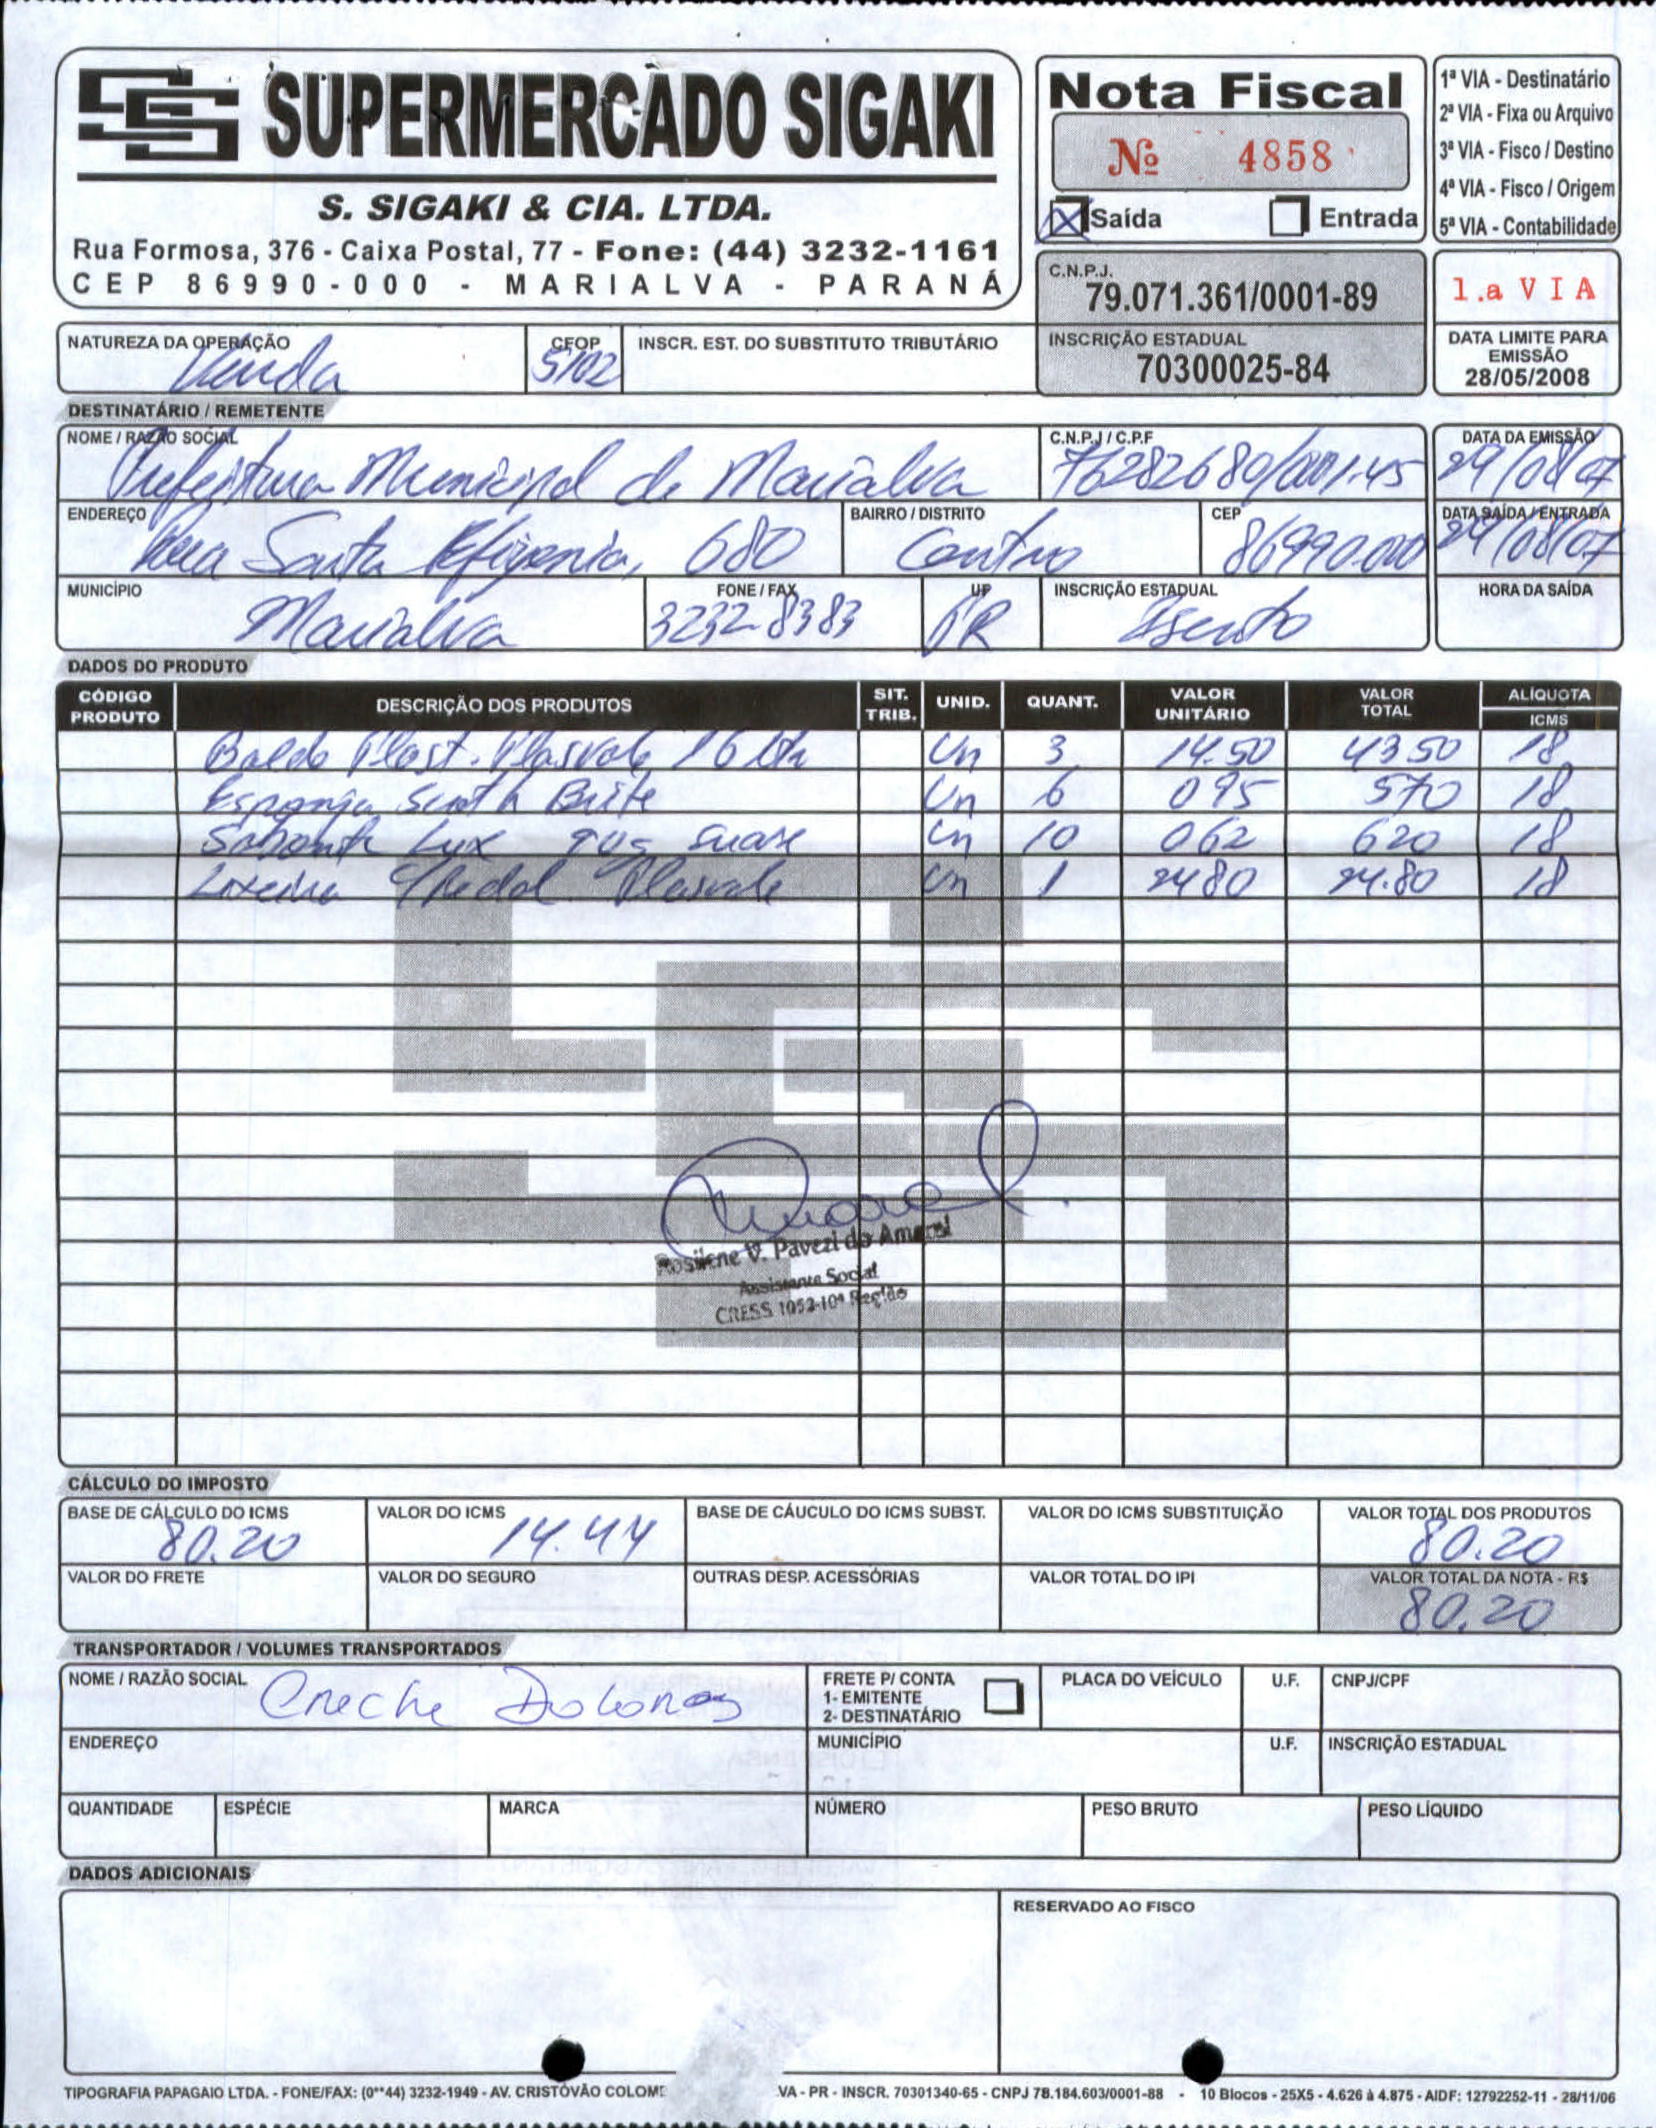 SUPERMERCADO SIGAKI
S. SIGAKI & CIA. LTDA.
Rua Formosa, 376 - Caixa Postal, 77 - Fone: (44) 3232-1161
CEP 86990-000 - MARIALVA - PARANÁ
Nota Fiscal
Nº 4858
X Saída Entrada
1ª VIA - Destinatário
2ª VIA - Fixa ou Arquivo
3ª VIA - Fisco / Destino
4ª VIA - Fisco / Origem
5ª VIA - Contabilidade
C.N.P.J.
79.071.361/0001-89
1.a VIA
INSCRIÇÃO ESTADUAL
70300025-84
DATA LIMITE PARA
EMISSÃO
28/05/2008
NATUREZA DA OPERAÇÃO
Venda
CFOP
5102
INSCR. EST. DO SUBSTITUTO TRIBUTÁRIO
DESTINATÁRIO / REMETENTE
NOME / RAZÃO SOCIAL
Prefeitura Municipal de Marialva
C.N.P.J / C.P.F
76282680/001.45
DATA DA EMISSÃO
29/08/07
ENDEREÇO
Rua Santa Efigenia, 680
BAIRRO / DISTRITO
Centro
CEP
86990.000
DATA SAÍDA / ENTRADA
29/08/07
MUNICÍPIO
Marialva
FONE / FAX
3232-8383
UF
PR
INSCRIÇÃO ESTADUAL
Isento
HORA DA SAÍDA
DADOS DO PRODUTO
CÓDIGO PRODUTO DESCRIÇÃO DOS PRODUTOS SIT. TRIB. UNID. QUANT. VALOR UNITÁRIO VALOR TOTAL ALÍQUOTA ICMS
Balde Plast. Plasvale 16 Lts Un 3 14.50 43 50 18
Esponja Scoth Brite Un 6 0 95 5 70 18
Sabonete Lux 90g Suave Un 10 0 62 6 20 18
Lixeira c/Pedal Plasvale Un 1 24 80 24.80 18
Rosilene V. Pavezi do Amaral
Assistente Social
CRESS 1052-10ª Região
CÁLCULO DO IMPOSTO
BASE DE CÁLCULO DO ICMS
80.20
VALOR DO ICMS
14.44
BASE DE CÁUCULO DO ICMS SUBST.
VALOR DO ICMS SUBSTITUIÇÃO
VALOR TOTAL DOS PRODUTOS
80.20
VALOR DO FRETE
VALOR DO SEGURO
OUTRAS DESP. ACESSÓRIAS
VALOR TOTAL DO IPI
VALOR TOTAL DA NOTA - R$
80.20
TRANSPORTADOR / VOLUMES TRANSPORTADOS
NOME / RAZÃO SOCIAL
Creche Dolores
FRETE P/ CONTA
1- EMITENTE
2- DESTINATÁRIO
PLACA DO VEÍCULO
U.F.
CNPJ/CPF
ENDEREÇO
MUNICÍPIO
U.F.
INSCRIÇÃO ESTADUAL
QUANTIDADE
ESPÉCIE
MARCA
NÚMERO
PESO BRUTO
PESO LÍQUIDO
DADOS ADICIONAIS
RESERVADO AO FISCO
TIPOGRAFIA PAPAGAIO LTDA. - FONE/FAX: (0**44) 3232-1949 - AV. CRISTÓVÃO COLOM VA - PR - INSCR. 70301340-65 - CNPJ 78.184.603/0001-88 - 10 Blocos - 25X5 - 4.626 à 4.875 - AIDF: 12792252-11 - 28/11/06